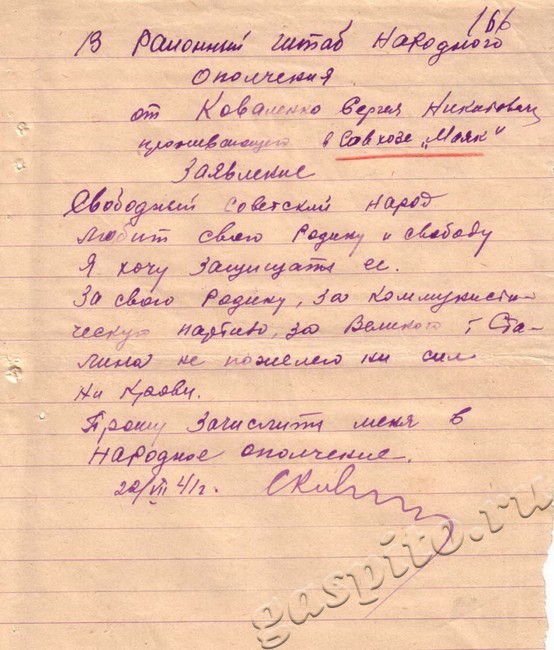 166
В Районный штаб Народного
ополчения
от Коваленко Сергея Никитовича
проживающего в Совхозе „Маяк"
Заявление
Свободный Советский Народ
любит свою Родину и свободу
Я хочу защищать ее.
За свою Родину, за коммунисти-
ческую партию, за Великого т Ста-
лина не пожелею ни сил
ни крови.
Прошу зачислить меня в
Народное ополчение.
22/VII 41 г.
gaspito.ru